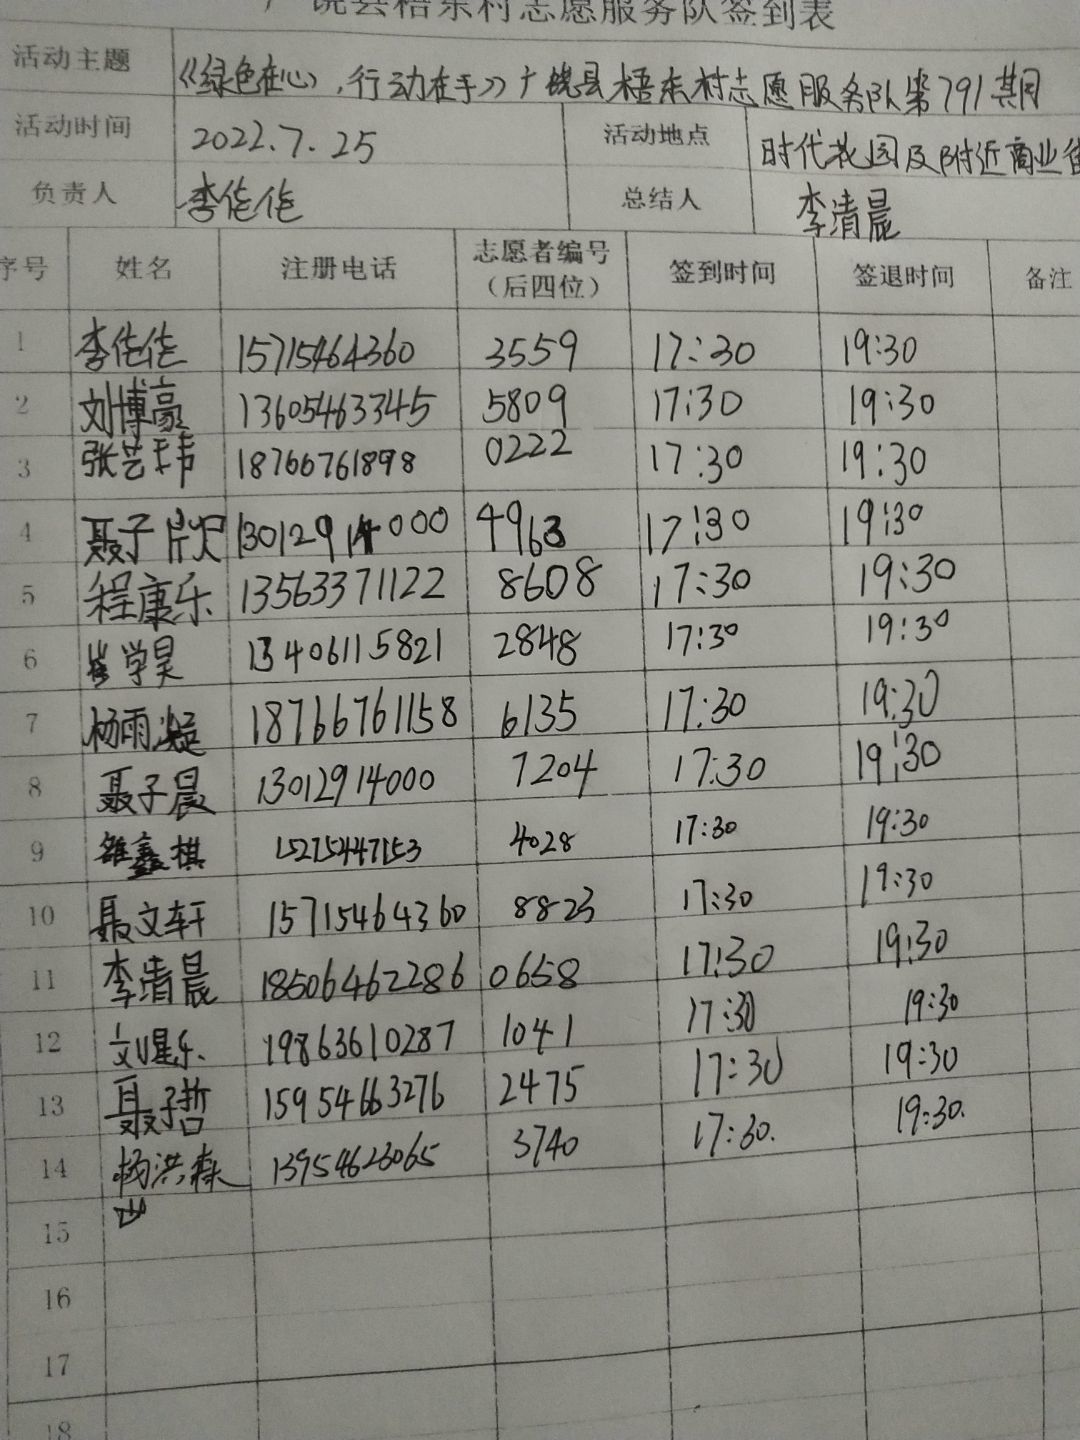 广饶县梧东村志愿服务队签到表
活动主题 《绿色在心,行动在手》广饶县梧东村志愿服务队第791期
活动时间 2022.7.25 活动地点 时代花园及附近商业街
负责人 李佳佳 总结人 李清晨
序号 姓名 注册电话 志愿者编号(后四位) 签到时间 签退时间 备注
1 李佳佳 15715464360 3559 17:30 19:30
2 刘博豪 13605463345 5809 17:30 19:30
3 张艺玮 18766761898 0222 17:30 19:30
4 聂子 13012914000 4963 17:30 19:30
5 程康乐 13563371122 8608 17:30 19:30
6 崔学昊 13406115821 2848 17:30 19:30
7 杨雨凝 18766761158 6135 17:30 19:30
8 聂子晨 13012914000 7204 17:30 19:30
9 鑫棋 15275447153 4028 17:30 19:30
10 聂文轩 15715464360 8823 17:30 19:30
11 李清晨 18506462286 0658 17:30 19:30
12 刘星乐 19863610287 1041 17:30 19:30
13 聂子哲 15954663276 2475 17:30 19:30
14 杨洪森 13954623065 3740 17:30. 19:30.
15
16
17
18